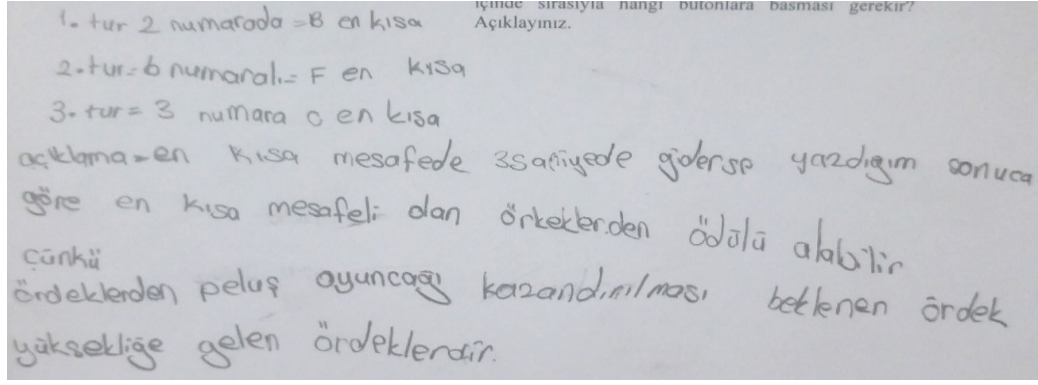 içinde sırasıyla hangi butonlara basması gerekir?
Açıklayınız.
1. tur 2 numarada = B en kısa
2. tur = 6 numaralı = F en kısa
3. tur = 3 numara c en kısa
açıklama = en kısa mesafede 3 saniyede giderse yazdığım sonuca
göre en kısa mesafeli olan örkeklerden ödülü alabilir
çünkü
ördeklerden peluş oyuncağı kazandırılması beklenen ördek
yüksekliğe gelen ördeklerdir.